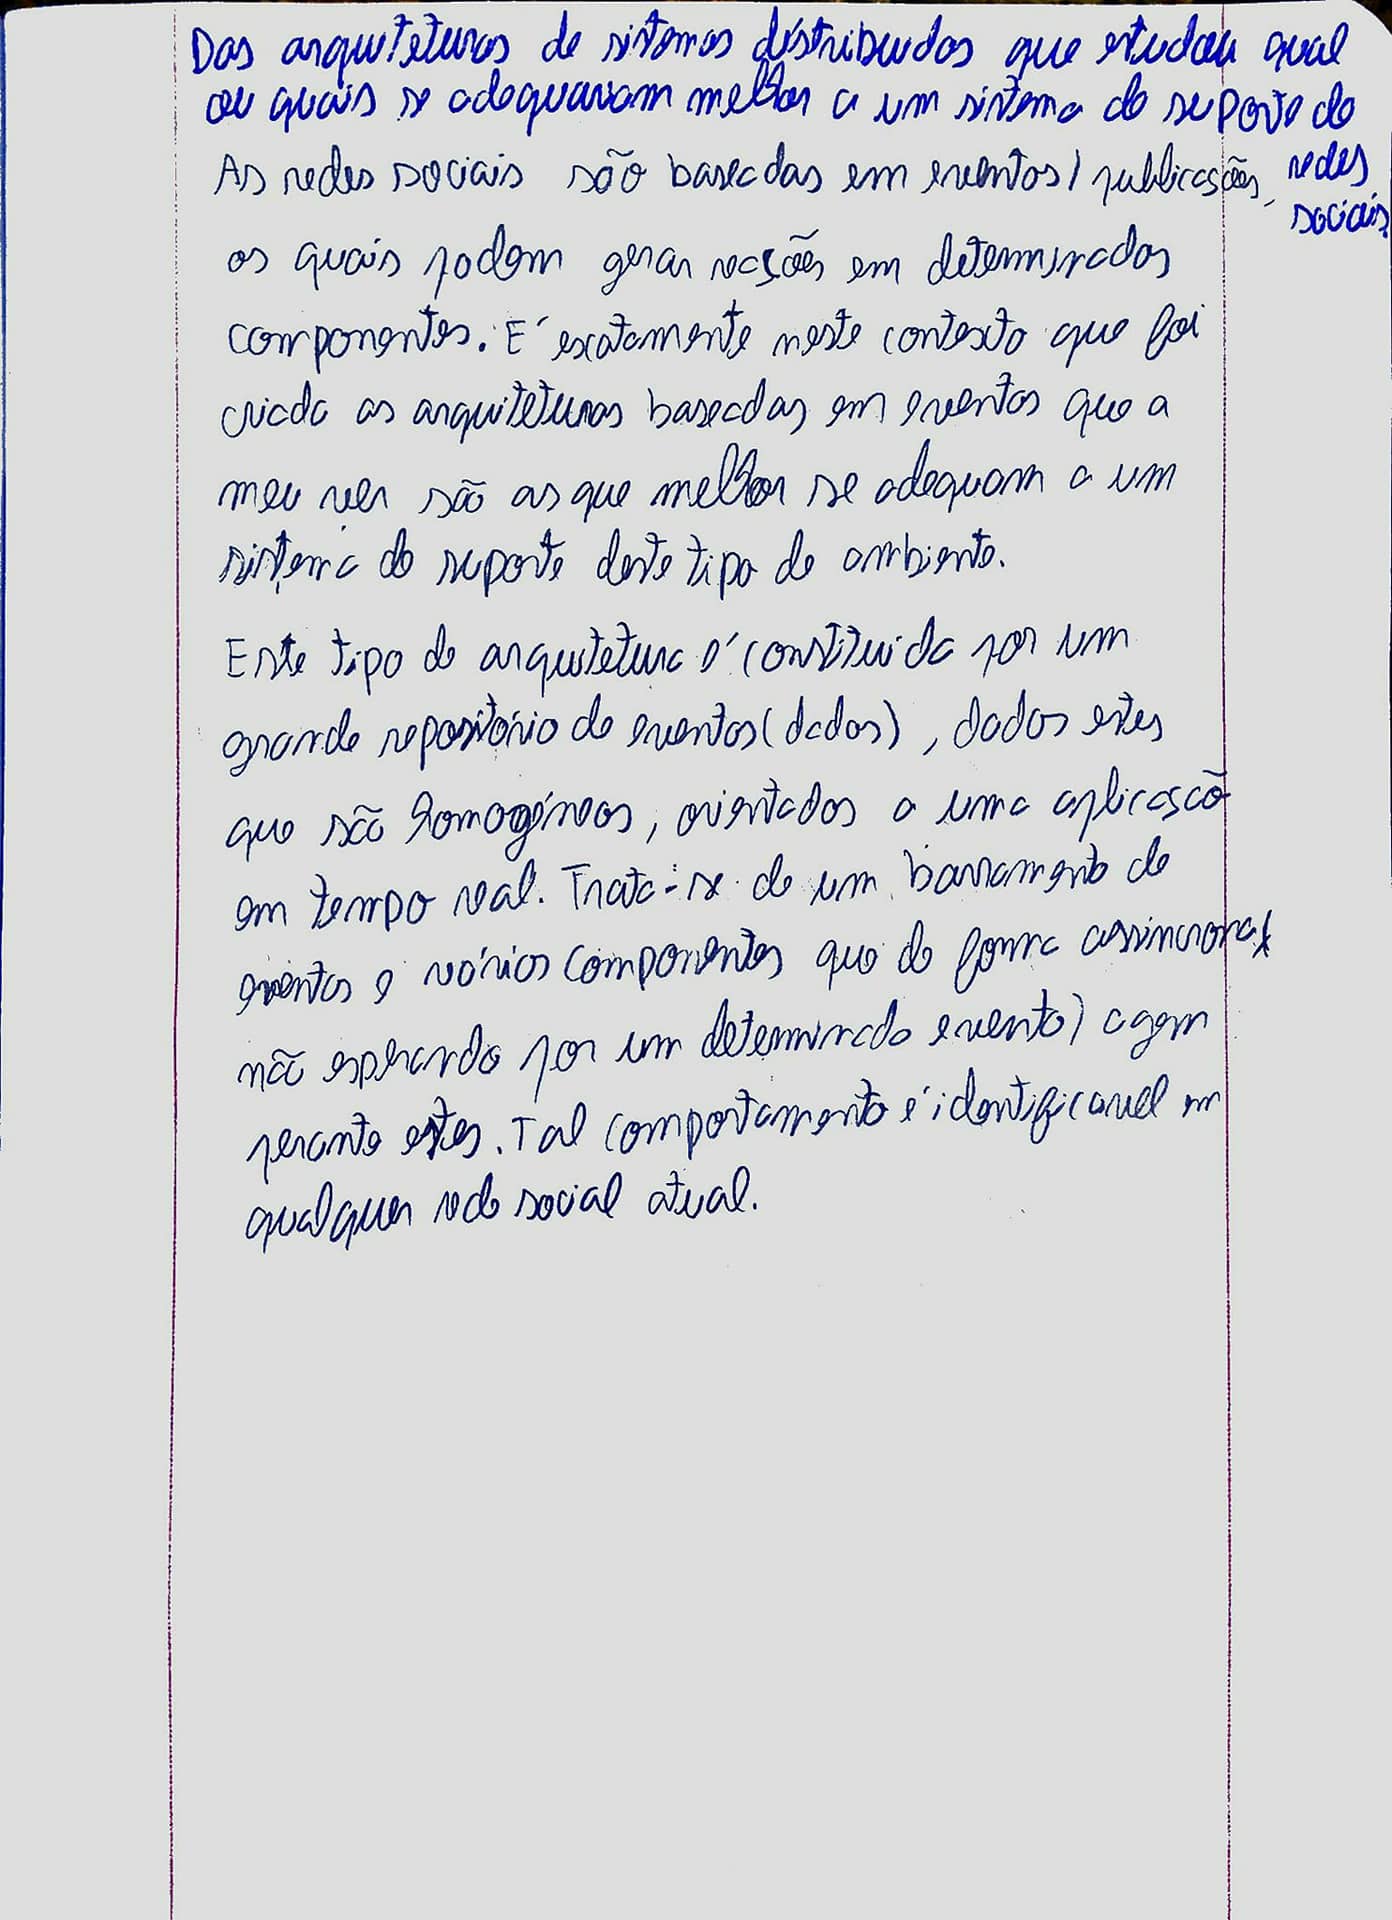 Das arquiteturas de sistemas distribuidos que estudou qual
ou quais se adequavam melhor a um sistema de suporte de
redes
sociais.
As redes sociais são baseadas em eventos/publicações,
os quais podem gerar reações em determinados
componentes. É exatamente neste contexto que foi
criada as arquiteturas baseadas em eventos que a
meu ver são as que melhor se adequam a um
sistema de suporte deste tipo de ambiente.
Este tipo de arquitetura é constituida por um
grande repositório de eventos (dados), dados estes
que são homogéneos, orientados a uma aplicação
em tempo real. Trata-se de um barramento de
eventos e vários componentes que de forma assincrona(
não esperando por um determinado evento) agem
perante estes. Tal comportamento é identificavel em
qualquer rede social atual.